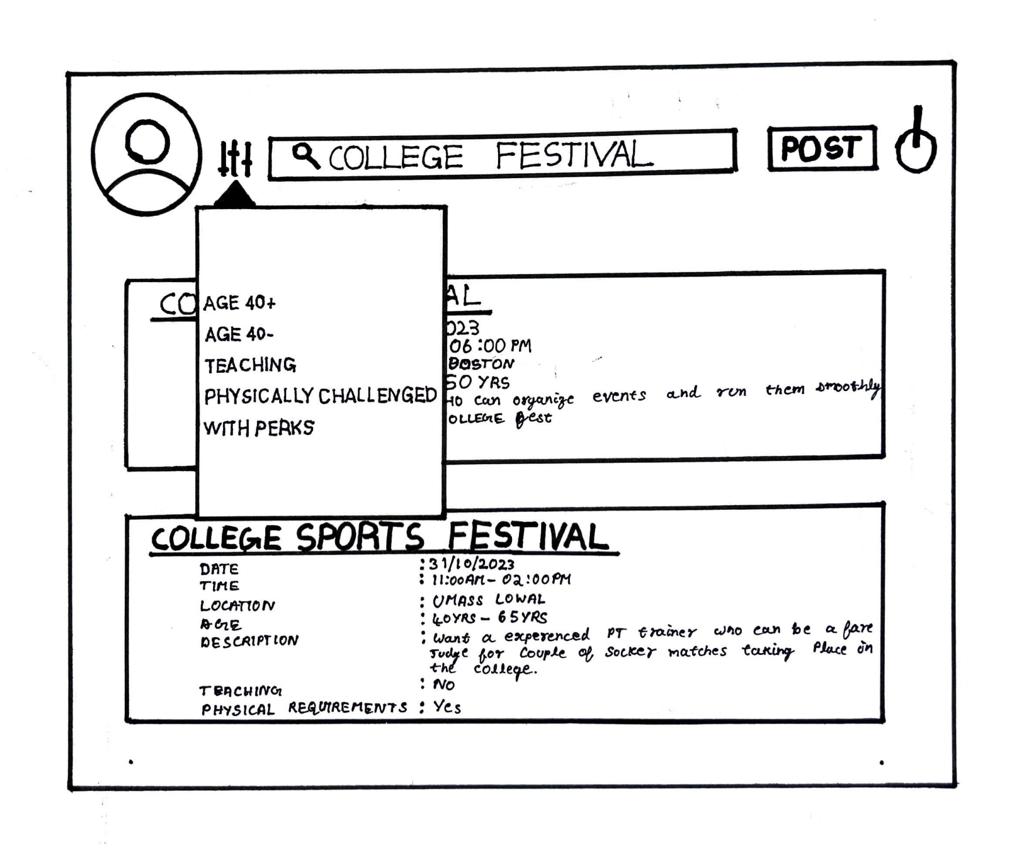 COLLEGE FESTIVAL
POST
AGE 40+
AGE 40-
TEACHING
PHYSICALLY CHALLENGED
WITH PERKS
CO
AL
023
06:00 PM
BOSTON
50 YRS
HO can organize events and run them smoothly
OLLEGE fest
COLLEGE SPORTS FESTIVAL
DATE : 31/10/2023
TIME : 11:00AM - 02:00PM
LOCATION : UMASS LOWAL
AGE : 40YRS - 65YRS
DESCRIPTION : Want a experenced PT trainer who can be a fare
Judge for couple of Socker matches taking Place on
the college.
TEACHING : NO
PHYSICAL REQUIREMENTS : Yes